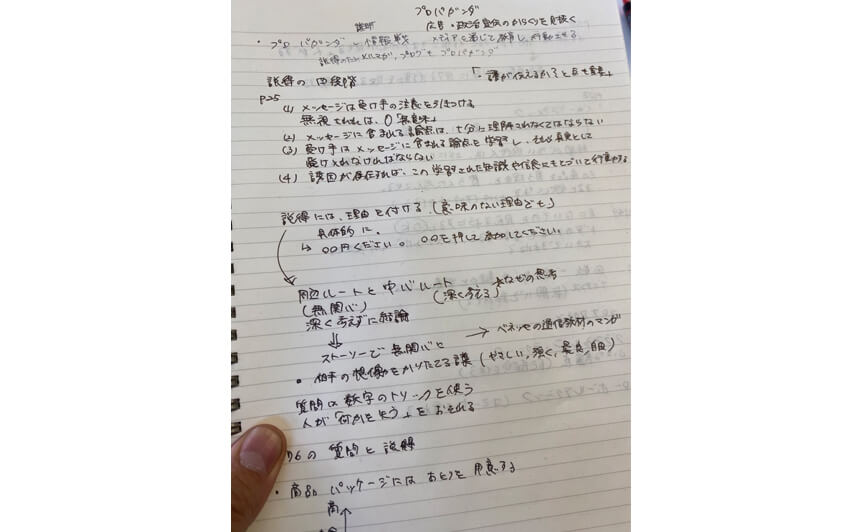 プロパガンダ
説明 広告・政治宣伝のからくりを見抜く
・プロパガンダ 情報戦 メディアを通じて 行動させる
説得のため メルマガ、ブログも プロパガンダ
説得の四段階 「・誰が伝えるか?と点も重要」
P25
(1) メッセージは受け手の注意を引きつける
無視されれば、0「無意味」
(2) メッセージに含まれる論点は、十分に理解されなくてはならない
(3) 受け手はメッセージに含まれる論点を学習し、それを真実として
受け入れなければならない
(4) 誘因が存在すれば、この学習された知識や信念にもとづいて行動する
説得には、理由を付ける(意味のない理由でも)
具体的に。
↳ 〇〇円ください。〇〇を押して参加してください。
周辺ルートと中心ルート なぜの思考
(無関心) (深く考える)
深く考えずに結論
⇓
ストーリーで無関心 → ベネッセの通信教材のマンガ
・相手の想像をかりたてる (やさしい、強く、最良、自由)
質問は数字のトリックを使う
人が「何かを失う」をおそれる
の質問と説得
・商品パッケージには おとりを用意する
高↑